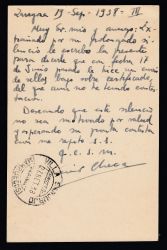 Zaragoza 19-Sep.-1938-III
Muy Sr. mio y amigo: Ex-
trañando por su prolongado si-
lencio le escribo la presente
para decirle que en fecha 17
de Junio puedo le hice un envio
de sellos bajo sobre certificado,
del que aun no he tenido contes-
tacion.
Deseando que este silencio
no sea motivado por salud
y esperando su pronta contesta
cion me repito S. S.
q. e. s. m.